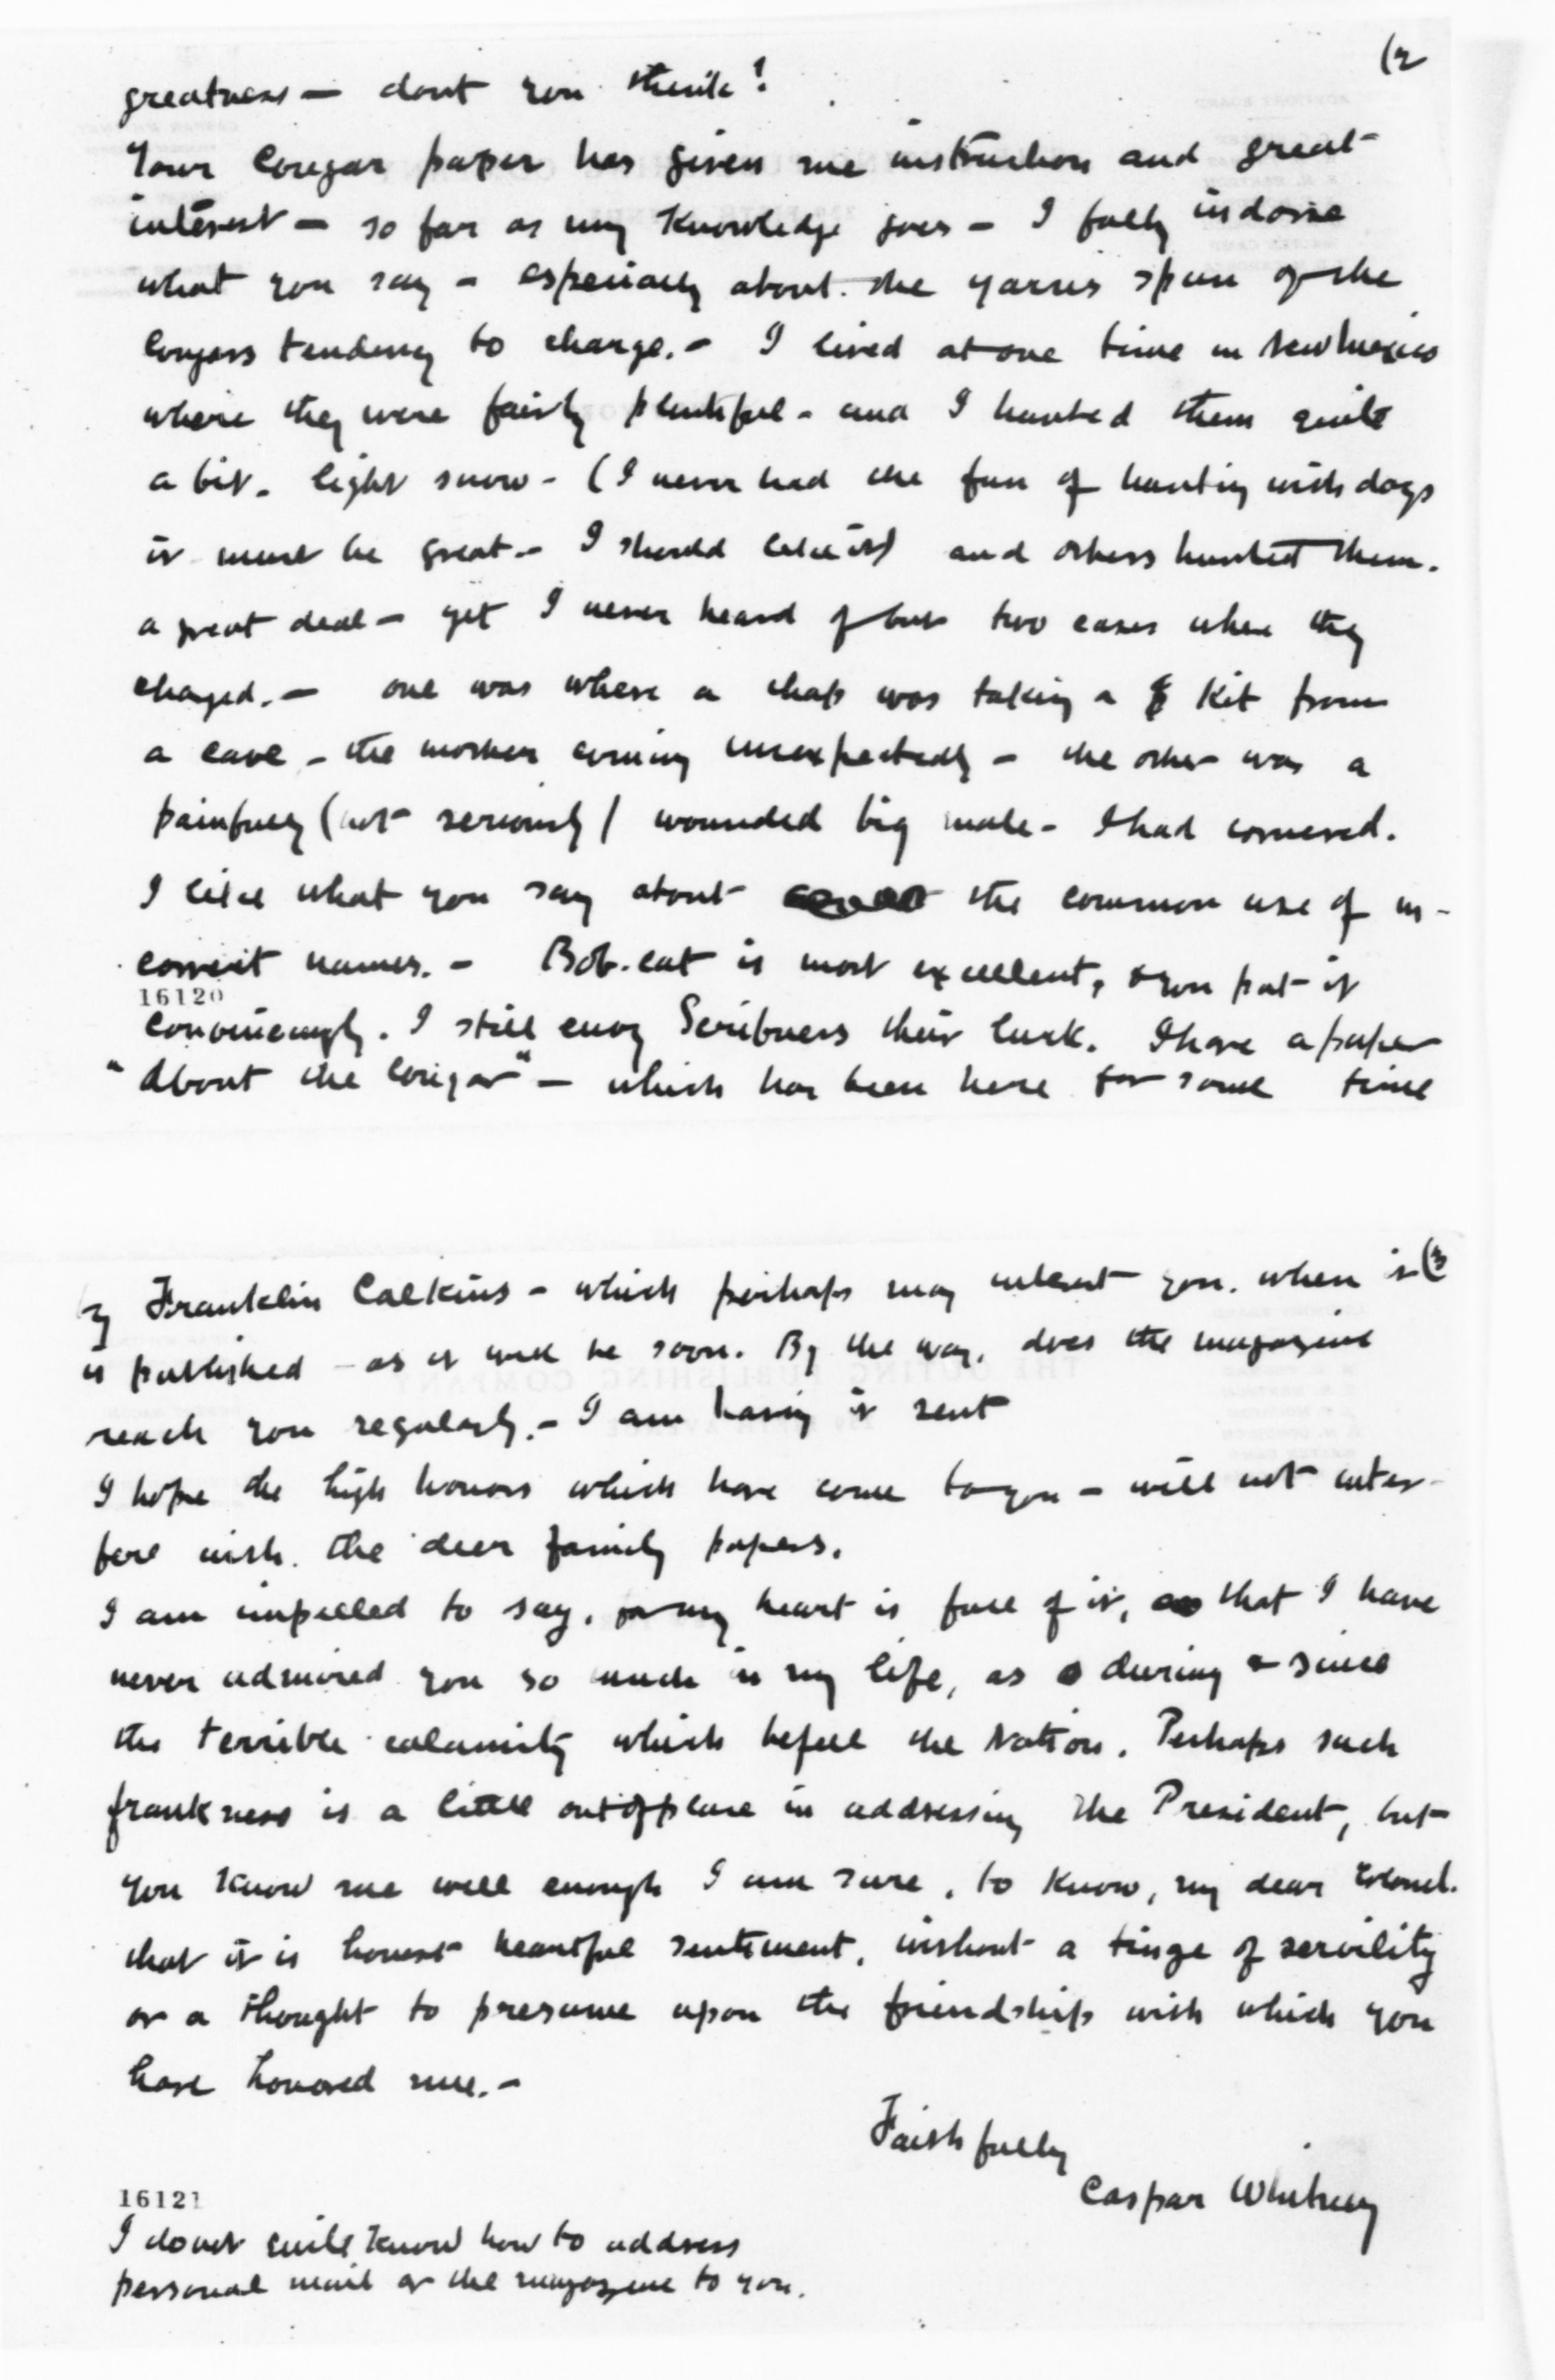 (2
greatness — dont you think?
Your Cougar paper has given me instruction and great
interest — so far as my Knowledge goes — I fully indorse
what you say — especially about the yarns spun of the
Cougars tendency to charge. — I lived at one time in New Mexico
where they were fairly plentiful — and I hunted them quite
a bit. light snow — (I never had the fun of hunting with dogs
it must be great — I should like it) and others hunted them.
a great deal — yet I never heard of but two cases when they
charged. — one was where a chap was taking a Kit from
a cave — the mother coming unexpectedly — the other was a
painfully (not seriously) wounded big male — I had cornered.
I like what you say about the common use of in-
correct names. — Bob-cat is most excellent, & you put it
16120
convincingly. I still envy Scribners their luck. I have a paper
"About the Cougar" — which has been here for some time
(3
by Franklin Calkins — which perhaps may interest you. when it
is published — as it will be soon. By the way, does the magazine
reach you regularly. — I am having it sent
I hope the high honors which have come to you — will not inter-
fere with the deer family papers.
I am impelled to say, for my heart is full of it, that I have
never admired you so much in my life, as during & since
the terrible calamity which befell the Nation. Perhaps such
frankness is a little out of place in addressing The President, but
you know me well enough I am sure, to Know, my dear Colonel.
that it is honest heartful sentiment, without a tinge of servility
or a thought to presume upon the friendship with which you
have honored me. —
Faithfully
Caspar Whitney
16121
I do not quite know how to address
personal mail or the magazine to you.